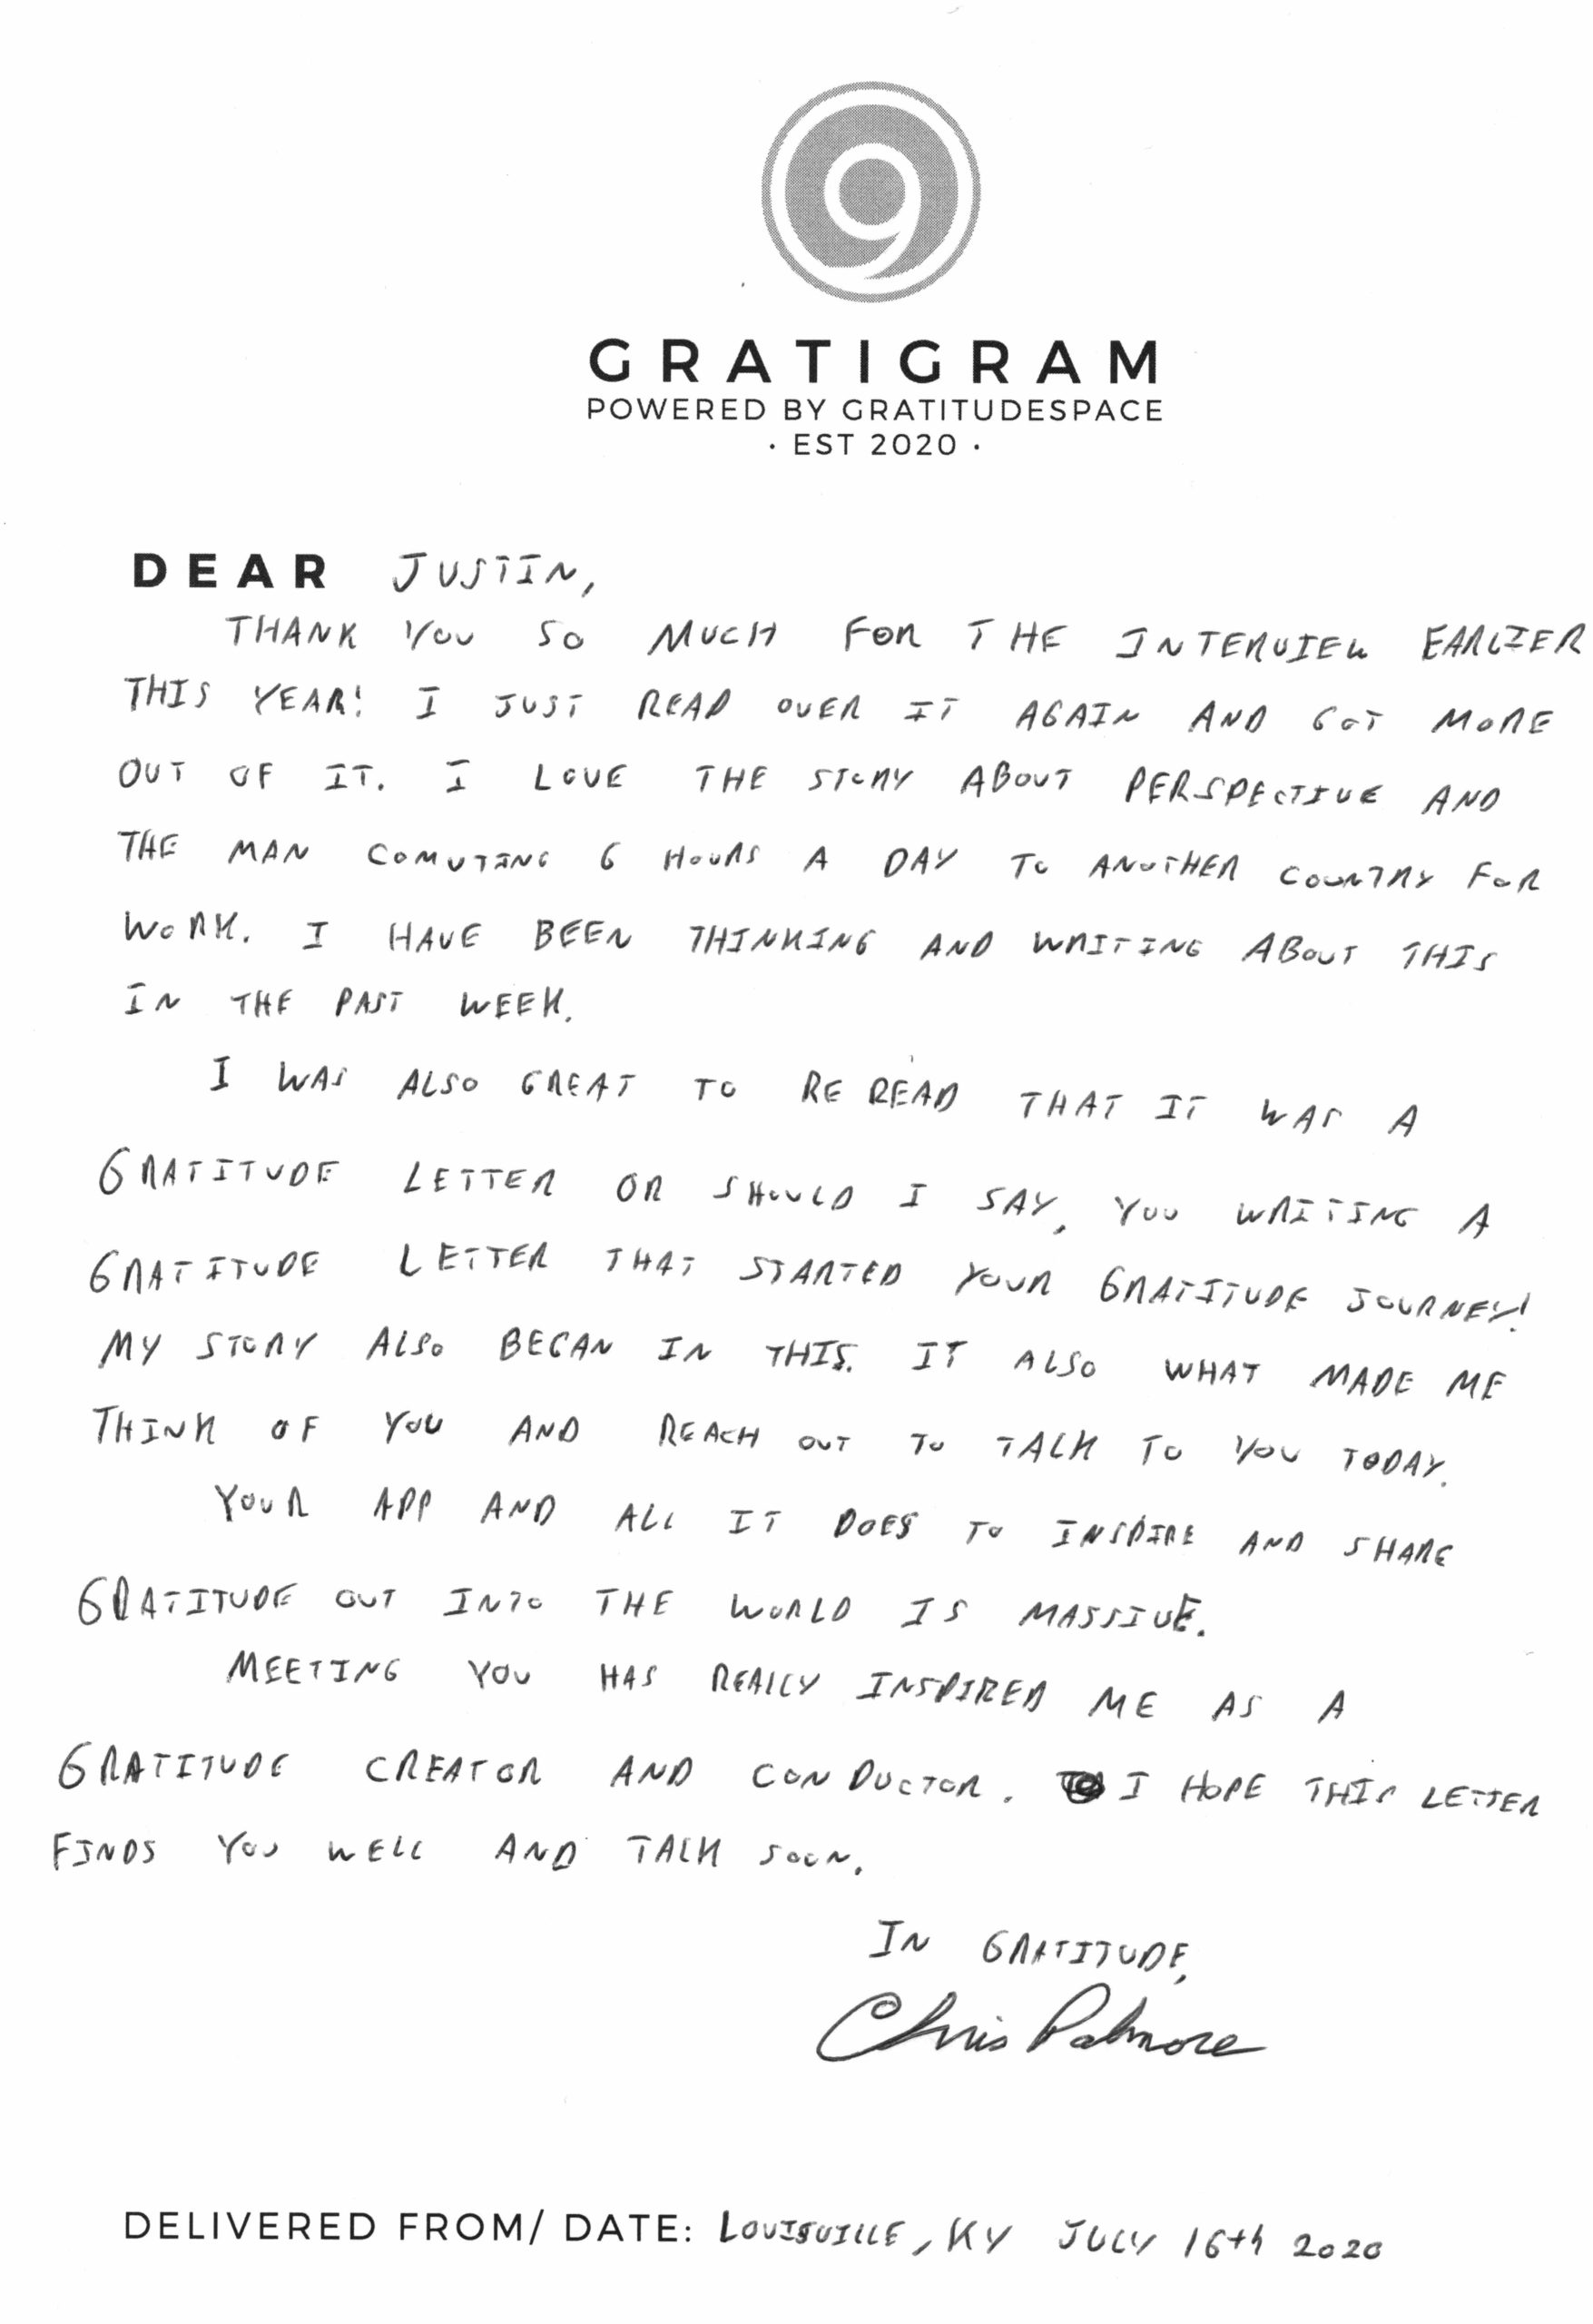 GRATIGRAM
POWERED BY GRATITUDESPACE
· EST 2020 ·
DEAR JUSTIN,
THANK YOU SO MUCH FOR THE INTERVIEW EARLIER
THIS YEAR! I JUST READ OVER IT AGAIN AND GOT MORE
OUT OF IT. I LOVE THE STORY ABOUT PERSPECTIVE AND
THE MAN COMUTING 6 HOURS A DAY TO ANOTHER COUNTRY FOR
WORK. I HAVE BEEN THINKING AND WRITING ABOUT THIS
IN THE PAST WEEK.
I WAS ALSO GREAT TO RE READ THAT IT WAS A
GRATITUDE LETTER OR SHOULD I SAY, YOU WRITING A
GRATITUDE LETTER THAT STARTED YOUR GRATITUDE JOURNEY!
MY STORY ALSO BEGAN IN THIS. IT ALSO WHAT MADE ME
THINK OF YOU AND REACH OUT TO TALK TO YOU TODAY.
YOUR APP AND ALL IT DOES TO INSPIRE AND SHARE
GRATITUDE OUT INTO THE WORLD IS MASSIVE.
MEETING YOU HAS REALLY INSPIRED ME AS A
GRATITUDE CREATOR AND CONDUCTOR. I HOPE THIS LETTER
FINDS YOU WELL AND TALK SOON.
IN GRATITUDE,
Chris Palmore
DELIVERED FROM/ DATE: LOUISVILLE, KY JULY 16th 2020